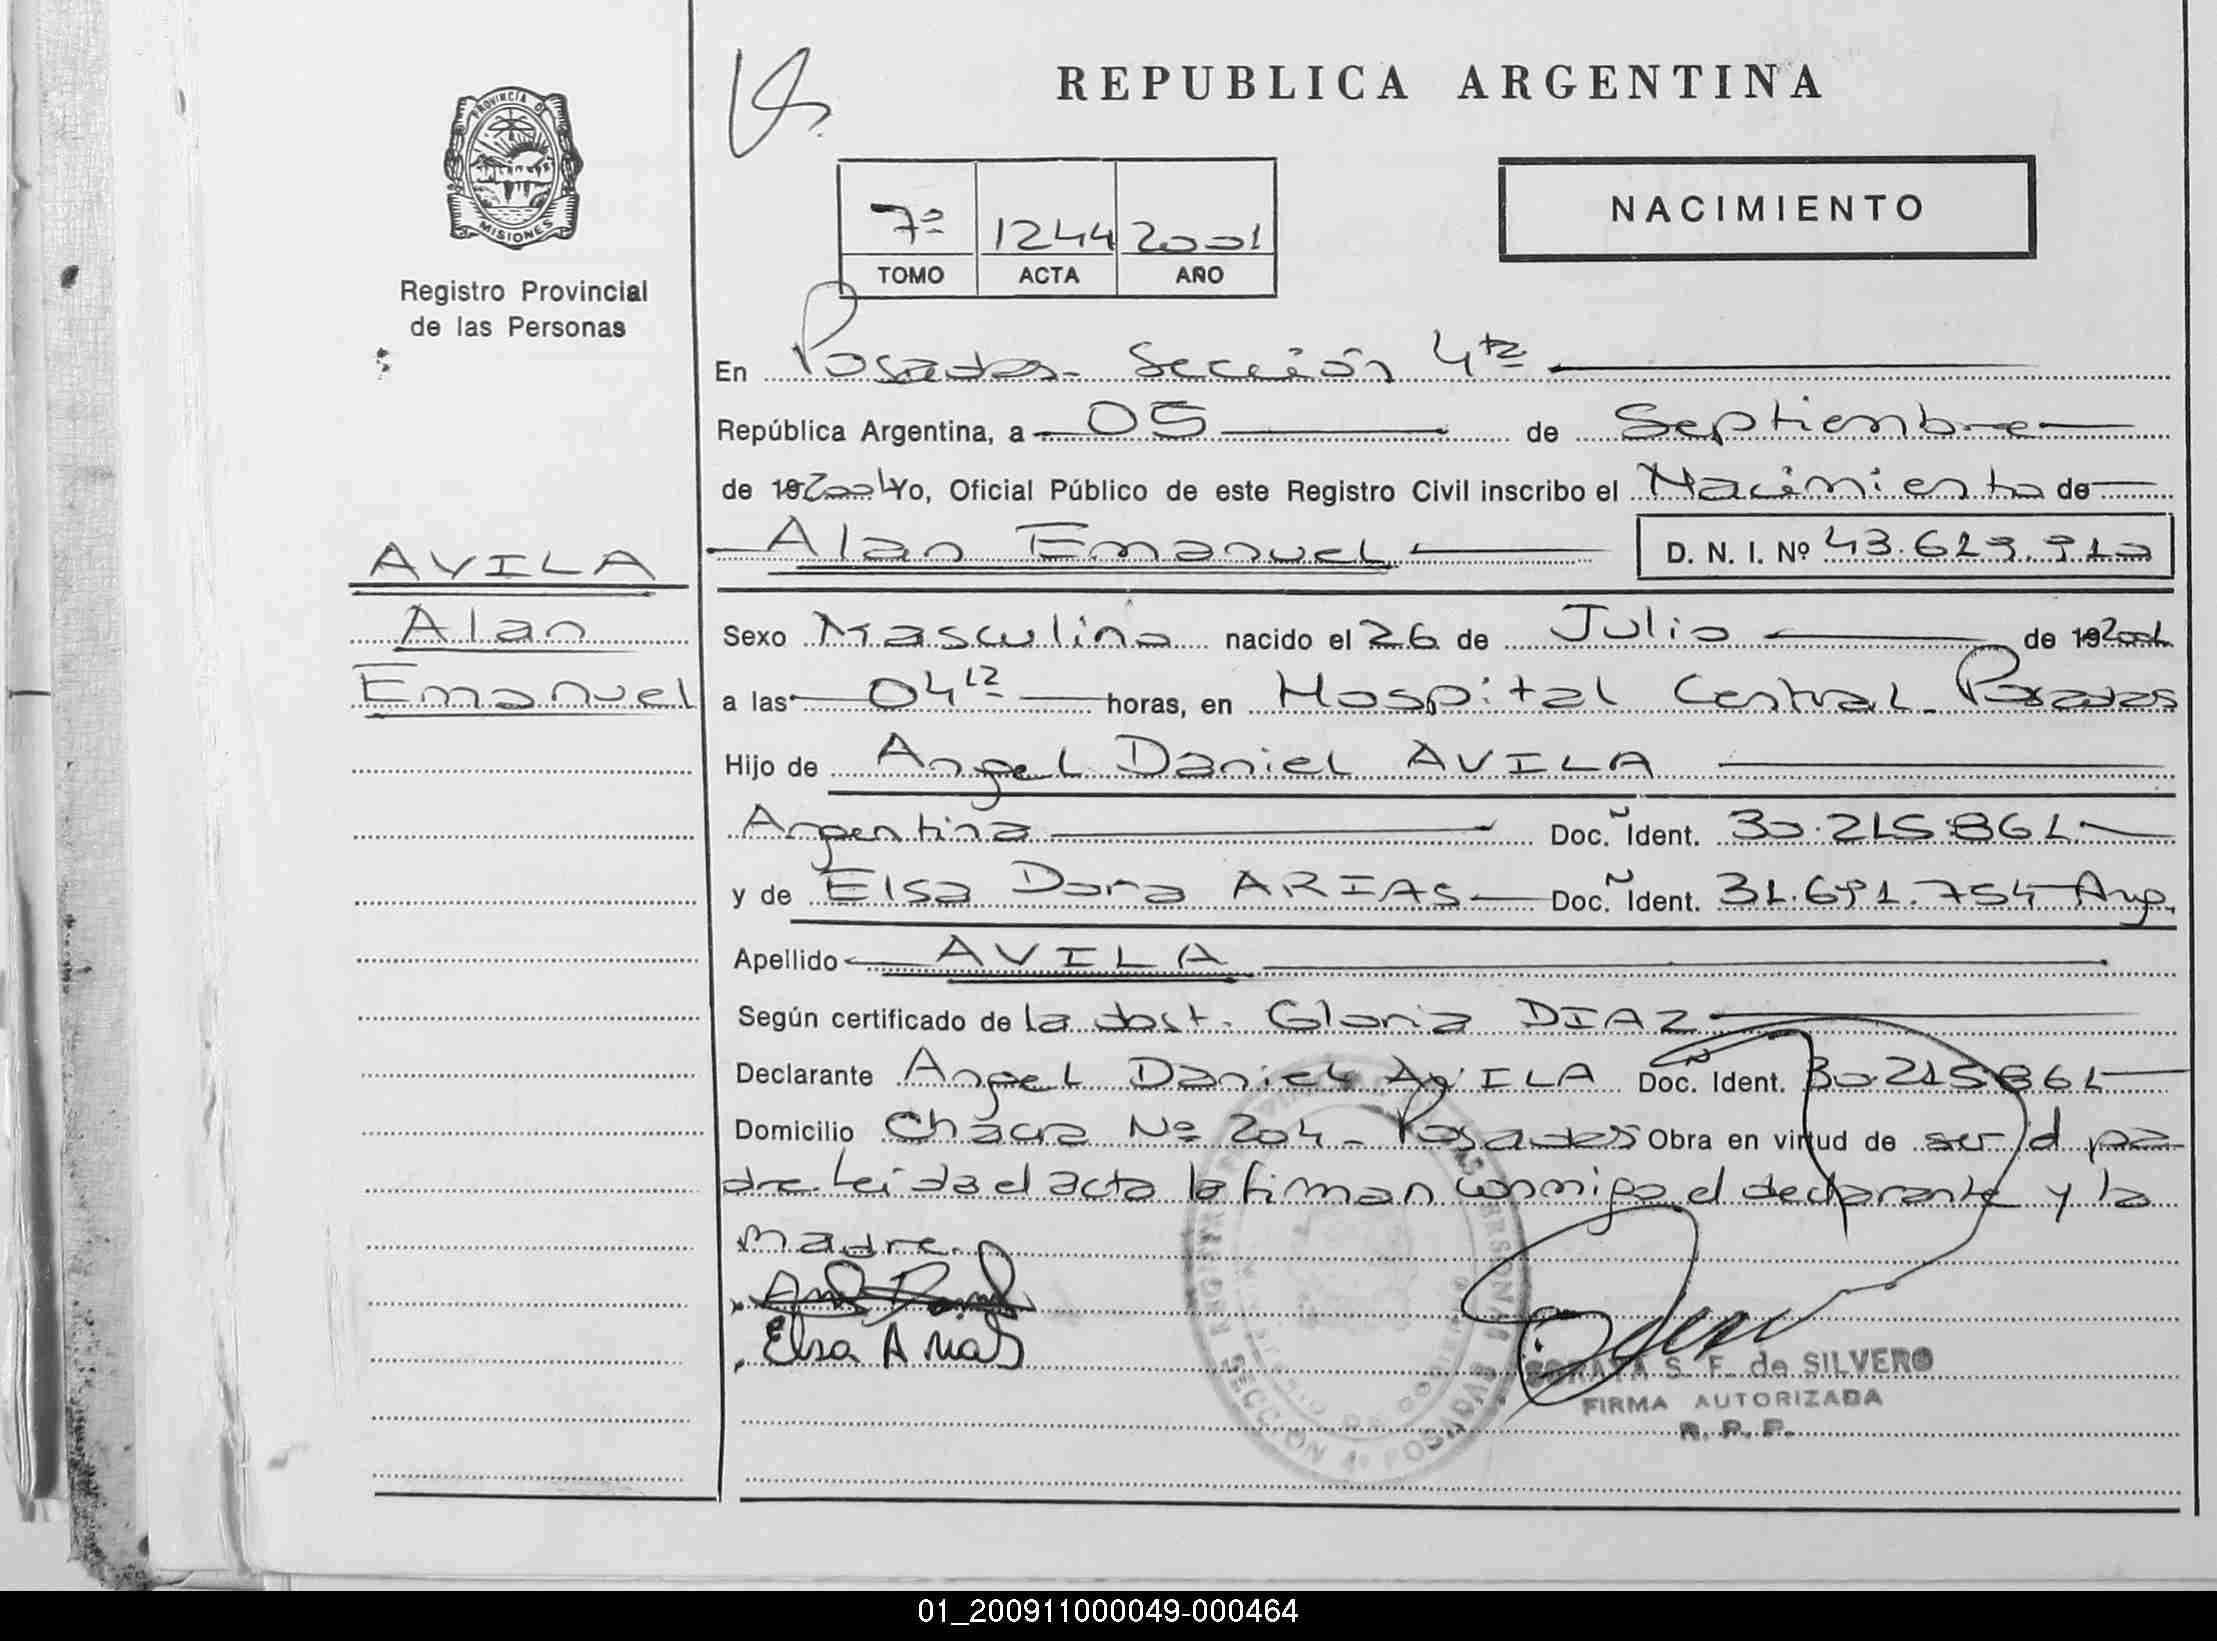 REPUBLICA ARGENTINA
PROVINCIA DE
MISIONES
Registro Provincial
de las Personas
NACIMIENTO
7º 1244 2001
TOMO ACTA AÑO
En Posadas- Sección 4ta
República Argentina, a 05 de Septiembre
de 19 2001 Yo, Oficial Público de este Registro Civil inscribo el Nacimiento de
Alan Emanuel D. N. I. Nº 43.629.910
AVILA
Alan
Emanuel
Sexo Masculino nacido el 26 de Julio de 19 2001
a las 04 12 horas, en Hospital Central- Posadas
Hijo de Angel Daniel AVILA
Argentina Doc. Ident. 30.215.861
y de Elsa Dora ARIAS Doc. Ident. 31.691.754 Arg.
Apellido AVILA
Según certificado de la obst. Gloria DIAZ
Declarante Angel Daniel AVILA Doc. Ident. 30.215.861
Domicilio Chacra Nº 204- Posadas Obra en virtud de ser el pa-
dre. Leida el acta la firman conmigo el declarante y la
madre.
Elsa Arias
SECCION 4º POSADAS
SORAYA S. F. de SILVERO
FIRMA AUTORIZADA
R. P. P.
01_200911000049-000464